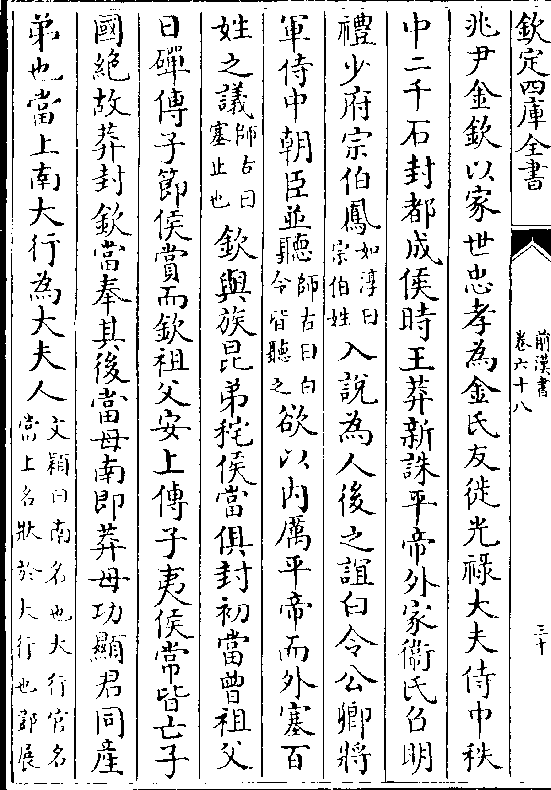 欽定四庫全書
前漢書
卷六十八
三十
兆尹金欽以家世忠孝為金氏友徙光祿大夫侍中秩
中二千石封都成侯時王莽新誅平帝外家衞氏召明
禮少府宗伯鳳如淳曰宗伯姓入說為人後之誼白令公卿將
軍侍中朝臣並聽師古曰白令皆聽之欲以内厲平帝而外塞百
姓之議師古曰塞止也欽與族昆弟秺侯當俱封初當曾祖父
日磾傳子節侯賞而欽祖父安上傳子夷侯常皆亡子
國絶故莽封欽當奉其後當母南即莽母功顯君同産
弟也當上南大行為大夫人文穎曰南名也大行官名當上名狀於大行也鄧展